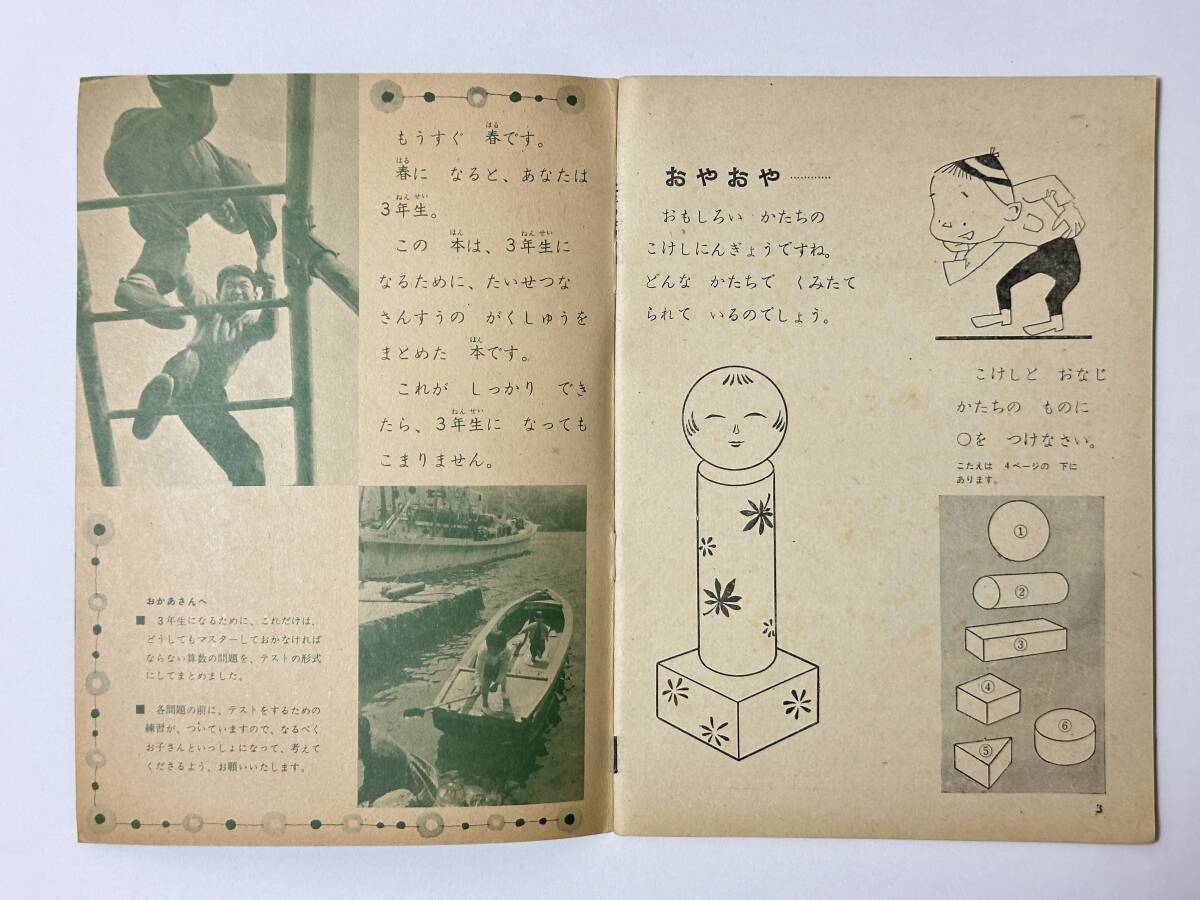 もうすぐ 春です。
春に なると、あなたは
3年生。
この 本は、3年生に
なるために、たいせつな
さんすうの がくしゅうを
まとめた 本です。
これが しっかり でき
たら、3年生に なっても
こまりません。
おかあさんへ
■ 3年生になるために、これだけは、
どうしてもマスターしておかなければ
ならない算数の問題を、テストの形式
にしてまとめました。
■ 各問題の前に、テストをするための
練習が、ついていますので、なるべく
お子さんといっしょになって、考えて
くださるよう、お願いいたします。
おやおや…………
おもしろい かたちの
こけしにんぎょうですね。
どんな かたちで くみたて
られて いるのでしょう。
こけしと おなじ
かたちの ものに
○を つけなさい。
こたえは 4ページの 下に
あります。
①
②
③
④
⑤
⑥
3